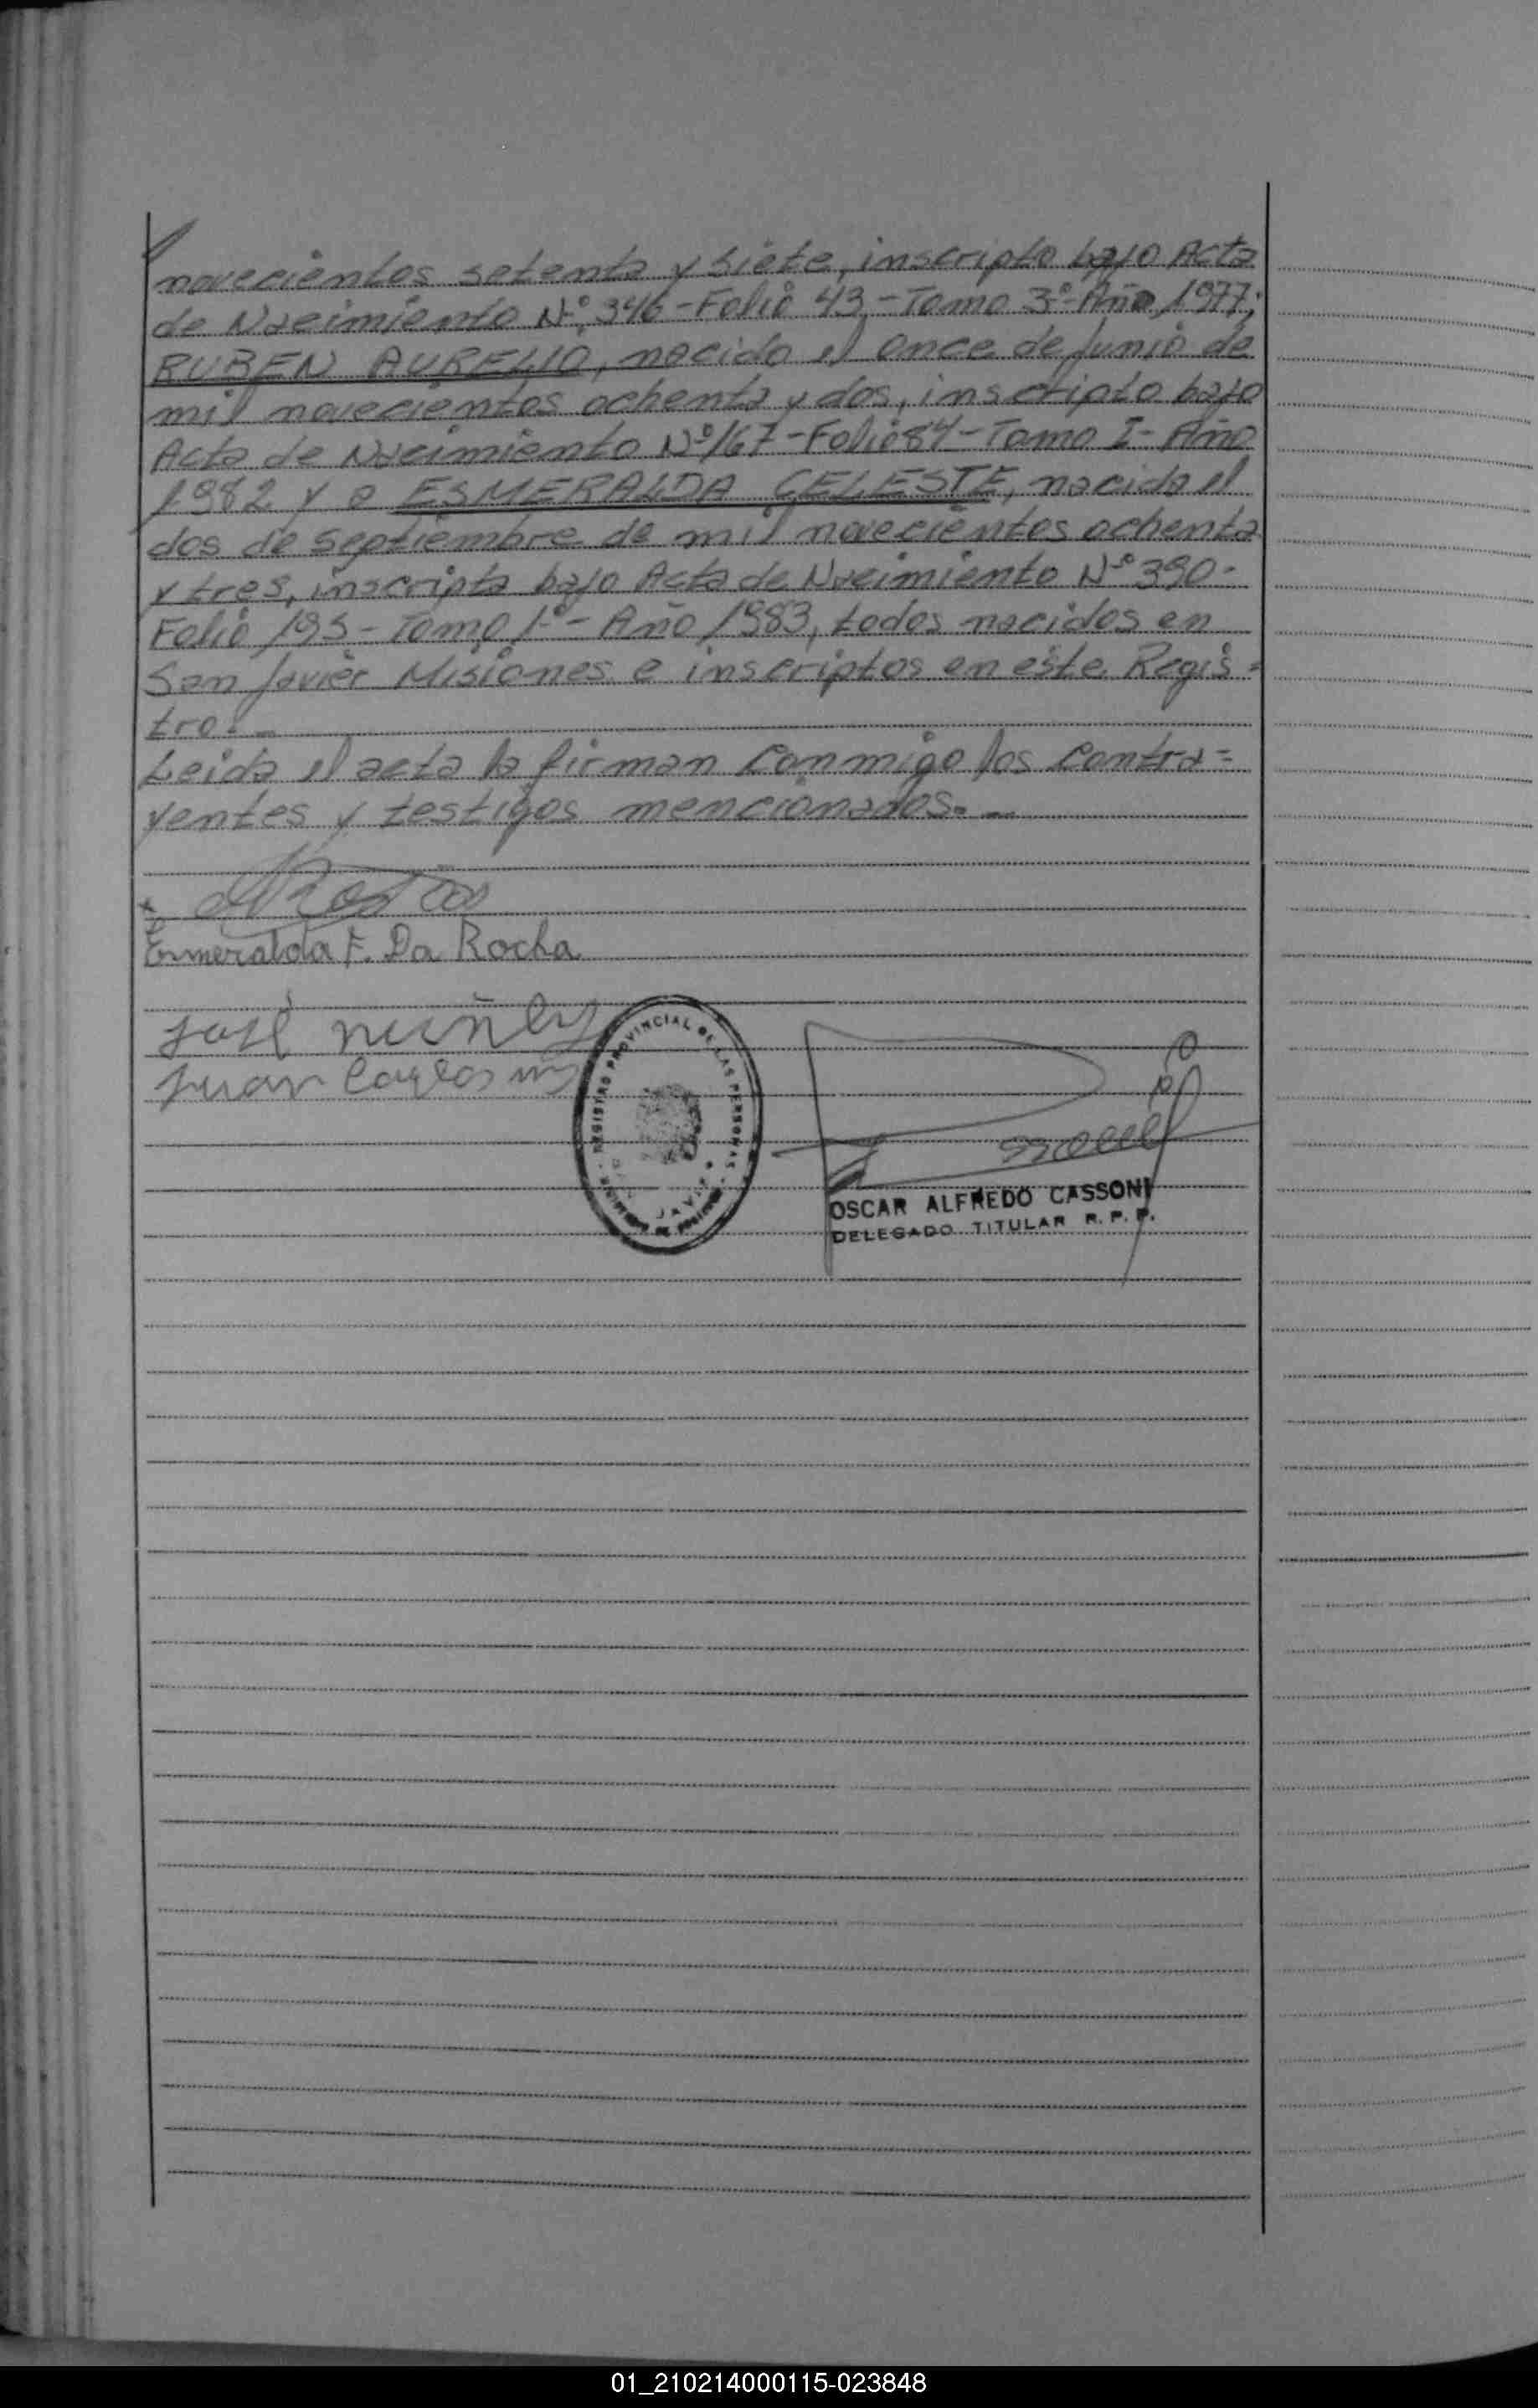 novecientos setenta y siete, inscripto bajo Acta
de Nacimiento Nº 346 - Folio 43 - Tomo 3º - Año 1977;
RUBEN AURELIO, nacido el once de Junio de
mil novecientos ochenta y dos, inscripto bajo
Acta de Nacimiento Nº 167 - Folio 84 - Tomo I - Año
1982 y a ESMERALDA CELESTE, nacida el
dos de Septiembre de mil novecientos ochenta
y tres, inscripta bajo Acta de Nacimiento Nº 390 -
Folio 195 - Tomo 1º - Año 1983, todos nacidos en
San Javier Misiones e inscriptos en este Regis=
tro.-
Leida el acta la firman conmigo los contra=
yentes y testigos mencionados.-
Esmeralda F. Da Rocha
José nuñez
Juan Carlos
REGISTRO PROVINCIAL DE LAS PERSONAS
OSCAR ALFREDO CASSONI
DELEGADO TITULAR R. P. P.
01_210214000115-023848